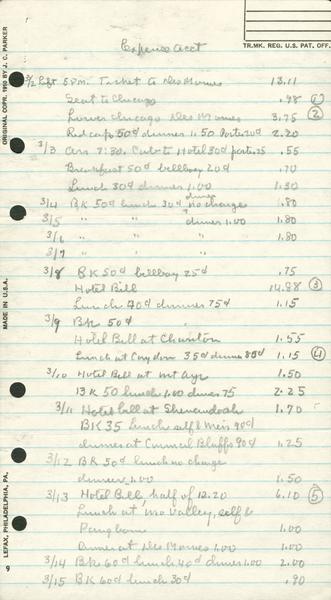 Expense Acct
TR.MK. REG. U.S. PAT. OFF.
ORIGINAL COPR. 1910 BY J. C. PARKER
3/2 Left 5 P.M. Ticket to Des Moines 13.11
Seat to Chicago .98 ①
Lower Chicago Des Moines 3.75 ②
Red caps 50¢ dinner 1.50 Porter 20¢ 2.20
3/3 Arr 7:30. Cab to Hotel 30¢ porter 25 .55
Breakfast 50¢ bellboy 20¢ .70
Lunch 30¢ dinner 1.00 1.30
3/4 BK 50¢ lunch 30¢ dinner no charge .80
3/5 " " " dinner 1.00 1.80
3/6 " " " 1.80
3/7 " " "
3/8 BK 50¢ bellboy 25¢ .75
Hotel Bill 14.88 ③
Lunch 40¢ dinner 75¢ 1.15
MADE IN U.S.A.
3/9 BK 50¢
Hotel Bill at Chariton 1.55
Lunch at Corydon 35¢ dinner 80¢ 1.15 ④
3/10 Hotel Bill at Mt Ayr 1.50
BK 50 lunch 1.00 dinner 75 2.25
3/11 Hotel bill at Shenandoah 1.70
BK 35 Lunch self & 90¢
dinner at Council Bluffs 90¢ 1.25
3/12 BK 50¢ lunch no charge
dinner 1.00 1.50
3/13 Hotel Bill, half of 12.20 6.10 ⑤
Lunch at Mo Valley, self &
Pangborn 1.00
Dinner at Des Moines 1.00 1.00
3/14 BK 60¢ lunch 40¢ dinner 1.00 2.00
3/15 BK 60¢ lunch 30¢ .90
LEFAX, PHILADELPHIA, PA.
9